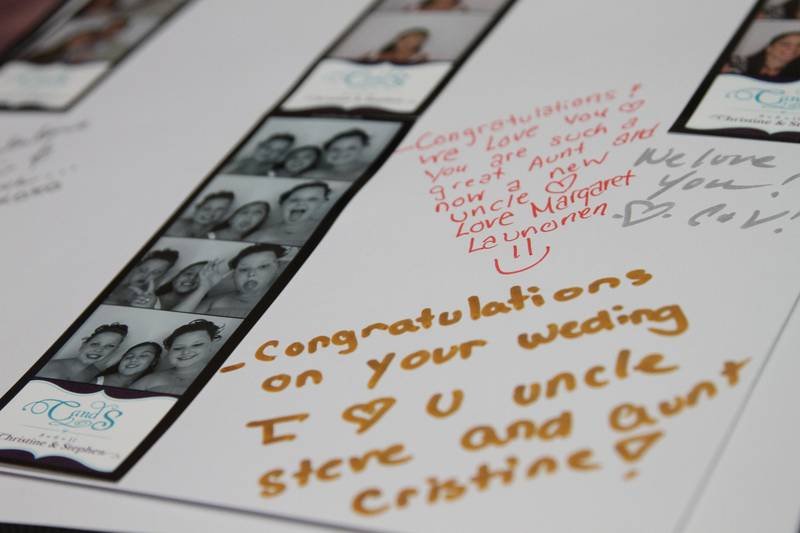 -Congratulations!
We love you ♡
you are such a
great Aunt and
now a new
uncle ♡
Love Margaret
Launonen
We love
you!
♡ C+V!
-Congratulations
on your weding
I ♡ U uncle
steve and aunt
cristine!
CandS
Christine & Stephen